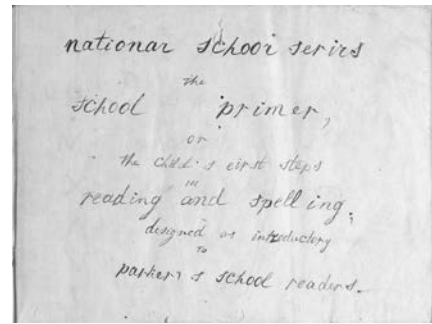 national school serirs
the
school primer,
or
the child's eirst steps
in
reading and spelling.
designed as introductory
to
parker's school readers.